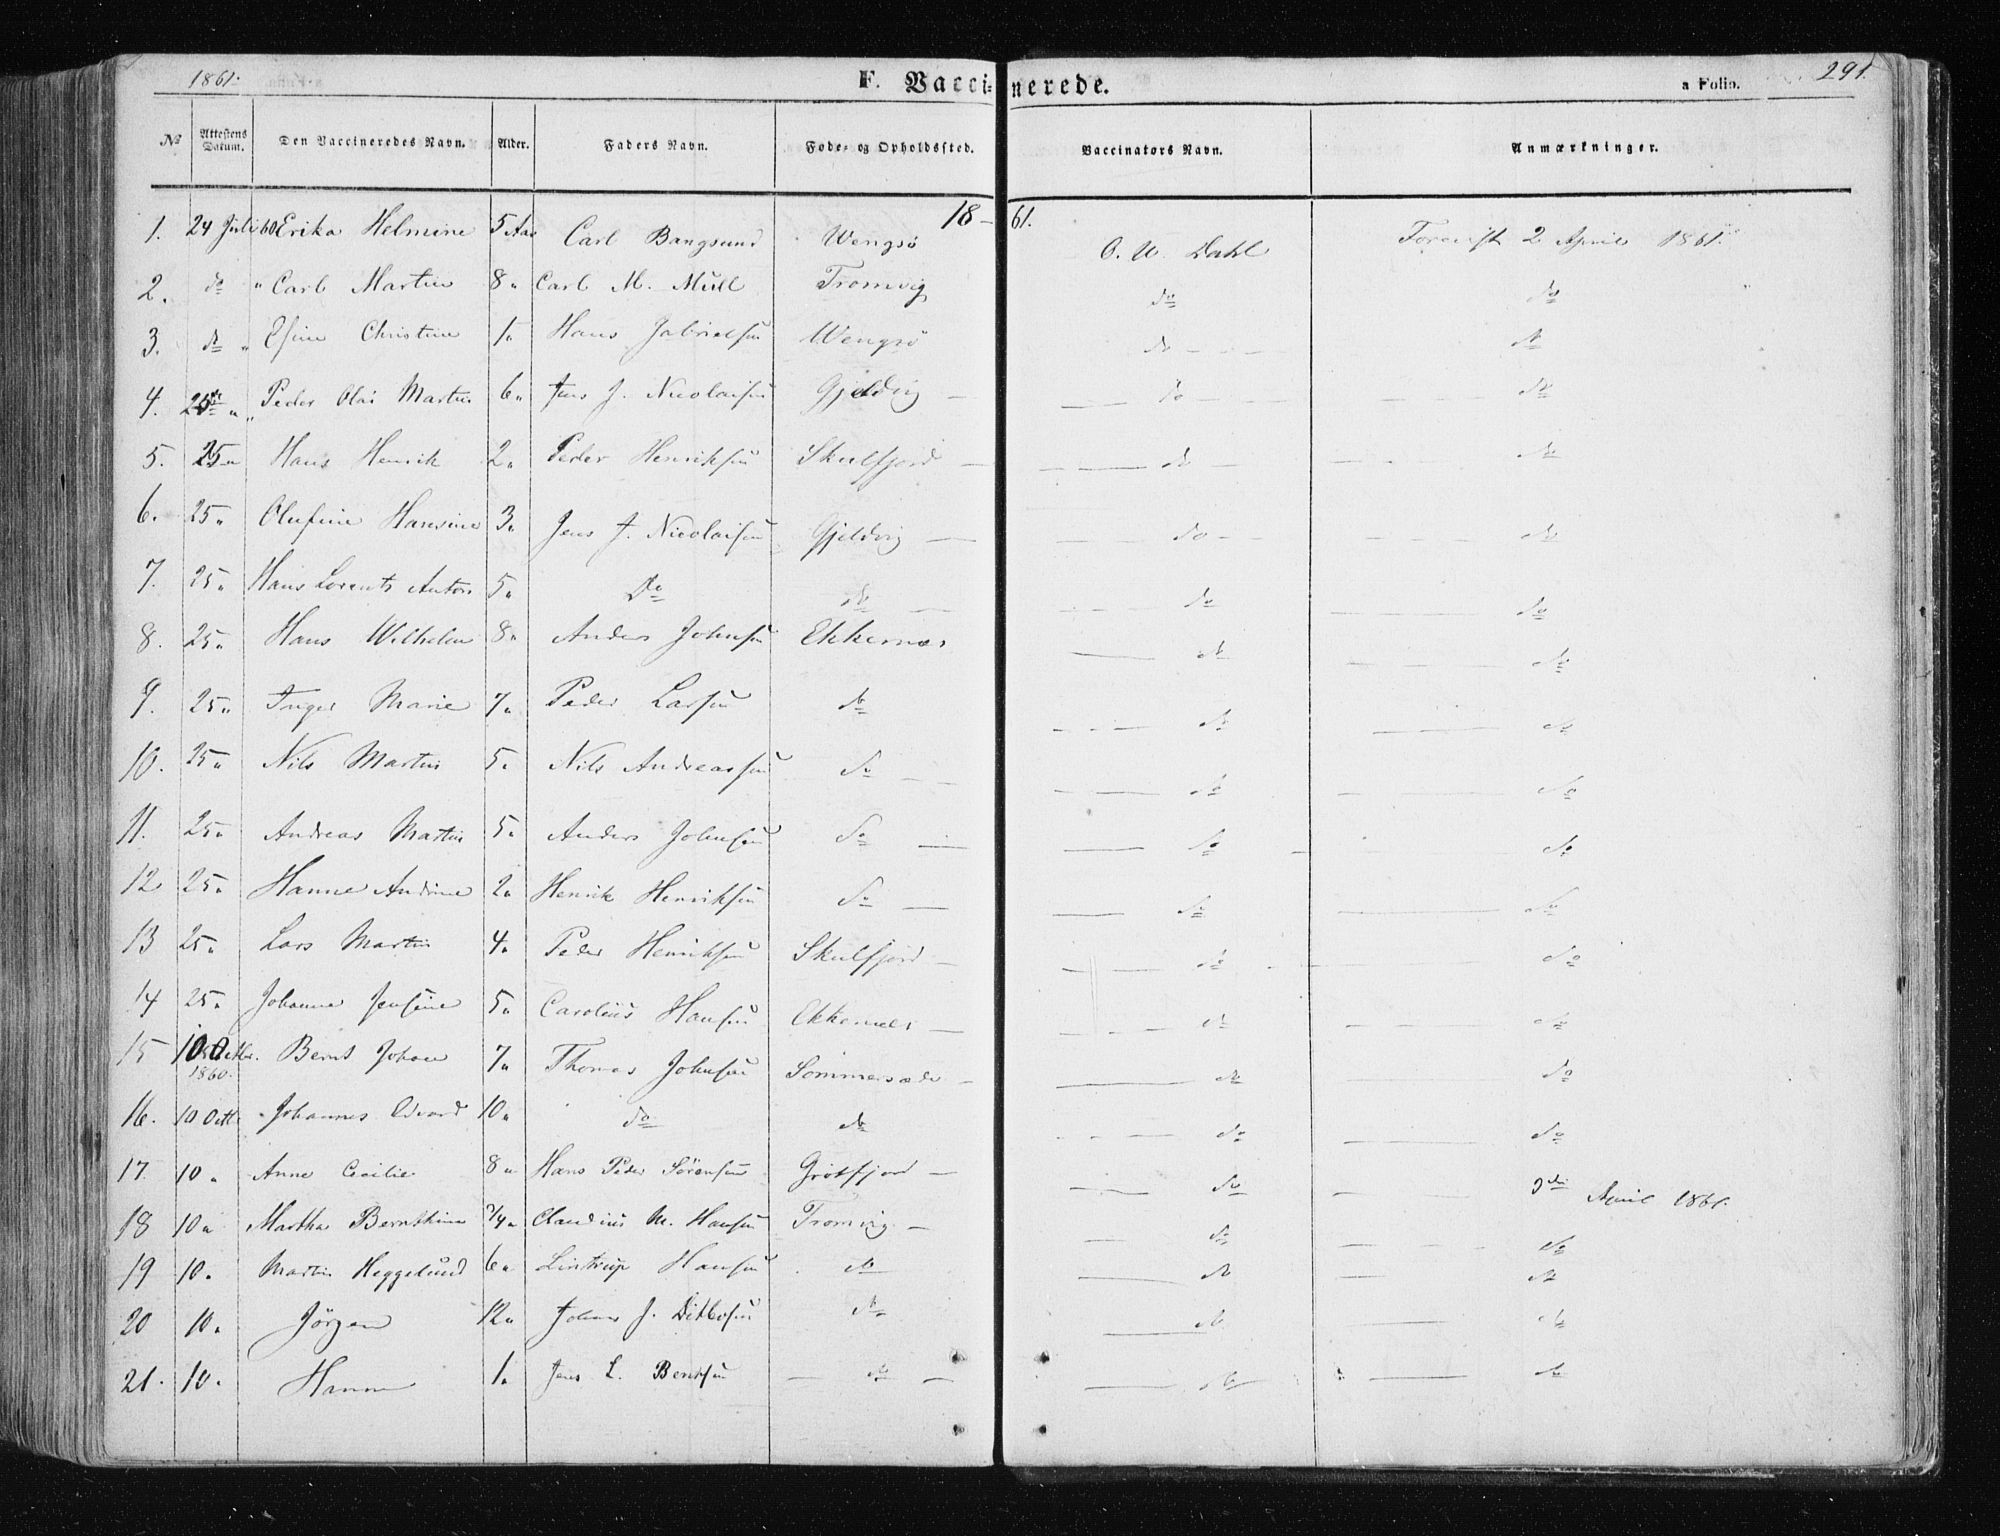 1861.
F. Vaccinerede.
a Folio. 291.
№ Attestens Datum. Den Vaccineredes Navn. Alder. Faders Navn. Føde- og Opholdssted. Vaccinators Navn. Anmærkninger.
18-61.
1. 24 Juli 60 Erika Helmine 5 Aar Carl Bangsund Wengsö O. U. Dahl Forevist 2 April 1861.
2. do " Carl Martin 8" Carl M. Müll Tromvig do do
3. do " Efine Christine 1" Hans Gabrielsen Wengsö do do
4. " Peder Olai Martin 6" Jens J. Nicolaisen Gjeldvig do do
5. 25" Hans Henrik 2" Peder Henriksen Skulfjord do do
6. 25" Olufine Hansine 3" Jens J. Nicolaisen Gjeldvig do do
7. 25" Hans Lorents Anton 5" Do do do do
8. 25" Hans Wilhelm 8" Anders Johnsen Ekkernæs do do
9. 25" Inger Marie 7" Peder Larsen do do do
10. 25" Nils Martin 5" Nils Andreassen do do do
11. 25" Andreas Martin 5" Anders Johnsen do do do
12 25" Hanne Andrine 2" Henrik Henriksen do do do
13 25" Lars Martin 4" Peder Henriksen Skulfjord do do
14 25" Johanna Jensine 5" Carolius Hansen Ekkernæs do do
15 10 Octbr. 1860. Bernt Johan 7" Thomas Johnsen Sommersæde do do
16. 10 Octb Johannes Edvard 10" do do do do
17. 10" Anne Cecilie 8" Hans Peder Sörensen Grötfjord do 3die April 1861.
18 10" Martha Bernthine 3/4" Claudius M. Hansen Tromvig do do
19 10" Martin Heggelund 6" Lintrup Hansen do do do
20 10" Jörgen 12" Johan J. Ditlevsen do do do
21. 10" Hanne 1" Jens L. Bentsen do do do